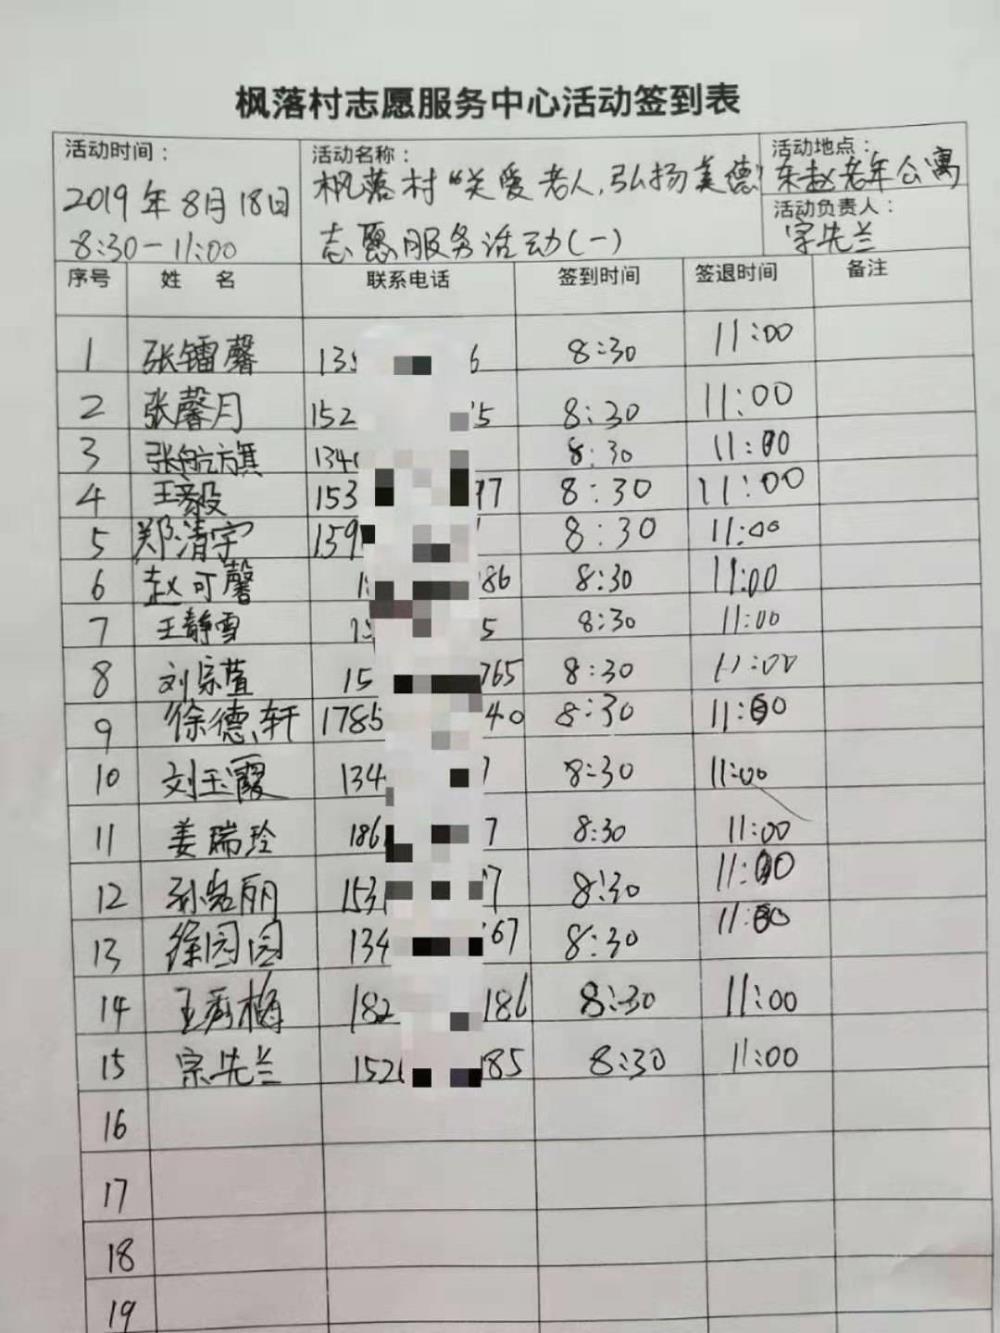 枫落村志愿服务中心活动签到表
活动时间：
2019年8月18日
8:30-11:00
活动名称：
枫落村“关爱老人，弘扬美德”
志愿服务活动(一)
活动地点：
东赵老年公寓
活动负责人：
宗先兰
序号 姓 名 联系电话 签到时间 签退时间 备注
1 张镭馨 13 6 8:30 11:00
2 张馨月 152 5 8:30 11:00
3 张航旗 134 8:30 11:00
4 王毅 153 77 8:30 11:00
5 郑清宇 159 8:30 11:00
6 赵可馨 1 86 8:30 11:00
7 王静雪 1 5 8:30 11:00
8 刘宗萱 15 765 8:30 11:00
9 徐德轩 1785 40 8:30 11:00
10 刘玉霞 134 8:30 11:00
11 姜瑞玲 186 7 8:30 11:00
12 丽 153 7 8:30 11:00
13 徐园园 134 67 8:30 11:00
14 王秀梅 182 186 8:30 11:00
15 宗先兰 152 85 8:30 11:00
16
17
18
19